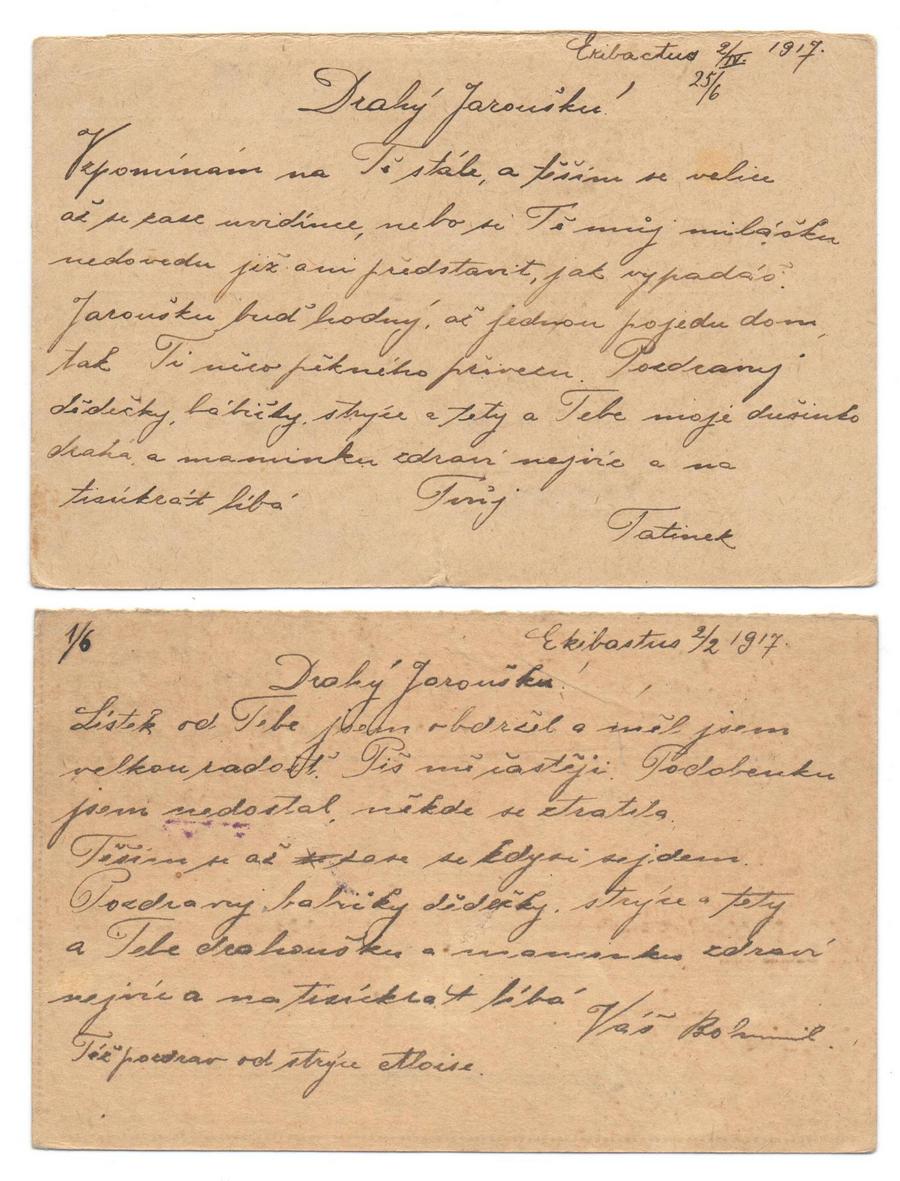 Ekibactus 2/IV. 1917.
25/6
Drahý Jaroušku!
Vzpomínám na Tě stále, a těším se velice
až se zase uvidíme, nebo si Tě můj miláčku
nedovedu již ani představit, jak vypadáš.
Jaroušku buď hodný, až jednou pojedu dom,
tak Ti něco pěkného přivezu. Pozdravuj
dědečky, babičky, strýce a tety a Tebe moje dušinko
drahá, a maminku zdraví nejvíc a na
tisíckrát líbá Tvůj
Tatínek
1/6
Ekibastus 2/2 1917.
Drahý Jaroušku!
Lístek od Tebe jsem obdržel a měl jsem
velkou radost. Piš mě častěji. Podobenku
jsem nedostal, někde se ztratila.
Těším se až zase se kdysi sejdem.
Pozdravuj babičky dědečky, strýce a tety
a Tebe drahoušku a maminku zdraví
nejvíc a na tisíckrát líbá
Váš Bohumil.
Též pozdrav od strýce Aloise.